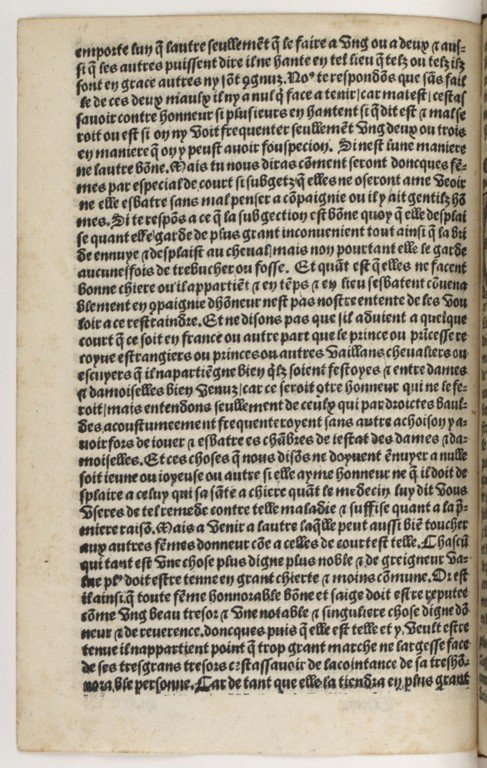 emporte luy q̃ lautre seullemẽt q̃ le faire a Vng ou a deux ⁊ aus-
si q̃ les autres puissent dire il ne hante en tel lieu q̃ telz ou telz ilz
font en grace autres ny sõt ꝯgnuz. No⁹ te respondõs que sãs fail
le de ces deux maulx il ny a nul q̃ face a tenir/car mal est/cest as
sauoir contre honneur si plusieurs en hantent si q̃ dit est ⁊ mal se
roit ou est si on ny Voit frequenter seullemẽt Vng deux ou trois
en maniere q̃ on y peust auoir souspecion. Si nest lune maniere
ne lautre bõne. Mais tu nous diras cõment seront doncques fẽ-
mes par especial de court si subgetz q̃ elles ne oseront ame Veoir
ne elle esbatre sans mal penser a cõpaignie ou il y ait gentilz hõ
mes. Si te respõs a ce q̃ la subgection est bõne quoy q̃ elle desplai
se quant elle garde de plus grant inconuenient tout ainsi q̃ la bri
de ennuye ⁊ desplaist au cheual/mais non pourtant elle le garde
aucuneffois de trebucher ou fosse. Et quãt est q̃ elles ne facent
bonne chiere ou il appartiẽt ⁊ en tẽps ⁊ en lieu sesbatent cõuena
blement en ꝯpaignie dhõneur nest pas nostre entente de les Vou
loir a ce restraindre. Et ne disons pas que sil aduient a quelque
court q̃ ce soit en france ou autre part que le prince ou prĩcesse re
coyue estrangiers ou princes ou autres Vaillans cheualiers ou
escuyers q̃ il napartiẽgne bien q̃lz soient festoyes ⁊ entre dames
⁊ damoiselles bien Venuz/car ce seroit ꝯtre honneur qui ne le fe-
roit/mais entendons seullement de ceulx qui par droictes baul-
des acoustumeement frequenteroyent sans autre achoison y a-
uoir fors de iouer ⁊ esbatre es chãbres de lestat des dames ⁊ da-
moiselles. Et ces choses q̃ nous disõs ne doyuent ẽnuyer a nulle
soit ieune ou ioyeuse ou autre si elle ayme honneur ne q̃ il doit de
splaire a celuy qui sa sãte a chiere quãt le medecin luy dit Vous
Vseres de tel remede contre telle maladie ⁊ suffise quant a la p̃-
miere raisõ. Mais a Venir a lautre laq̃lle peut aussi biẽ toucher
aux autres fẽmes donneur cõe a celles de court est telle. Chascũ
qui tant est Vne chose plus digne plus noble ⁊ de greigneur Va-
lue pl⁹ doit estre tenue en grant chierte ⁊ moins cõmune. Or est
il ainsi q̃ toute fẽme honnorable bõne et saige doit estre reputee
cõme Vng beau tresor ⁊ Vne notable ⁊ singuliere chose digne dõ
neur ⁊ de reuerence. doncques puis q̃ elle est telle et y Veult estre
tenue il nappartient point q̃ trop grant marche ne largesse face
de ses tresgrans tresors cestassauoir de lacointance de sa treshõ-
nora ble personne. Car de tant que elle la tiendra en plus grant